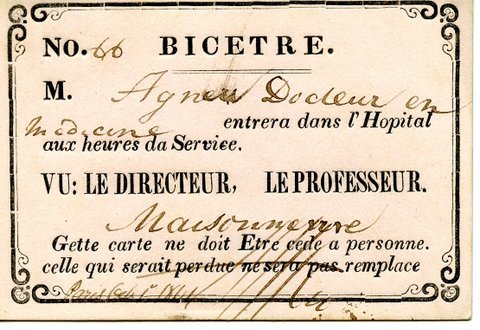 NO. 66 BICETRE.
M. Agnew Docteur en
Médecine entrera dans l'Hopital
aux heures da Service.
VU: LE DIRECTEUR, LE PROFESSEUR.
Maisonneuve
Gette carte ne doit Etre cede a personne.
celle qui serait perdue ne sera pas remplace
Paris